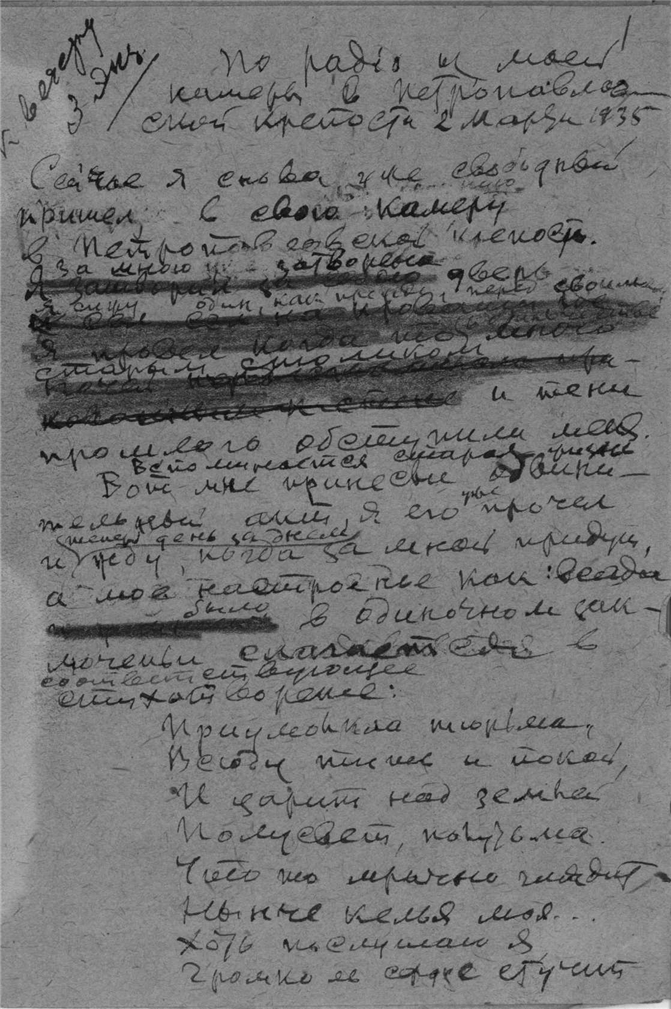 к вечеру
3 экз
По радіо из моей
камеры в Петропавлов-
ской крепости 2 марта 1935
Сейчас я снова уже свободный
пришел в свою камеру
в Петропавловской крепости.
За мною затворена дверь
Я сижу один, как прежде, перед своим
старым столиком
и тени
прошлого обступили меня.
Вспоминается старая жизнь
Вот мне принесли обвини-
тельный акт, я его уже прочел
и жду теперь день за днем, когда за мной придут,
а мое настроенье как всегда
было в одиночном зак-
люченьи слагается в
соответствующее
стихотворенье:
Приумолкла тюрьма,
Всюду тишь и покой,
И царит над землей
Полусвет, полутьма.
Что то мрачно глядит
Нынче келья моя...
Хоть послушаю я
Громко ль сердце стучит